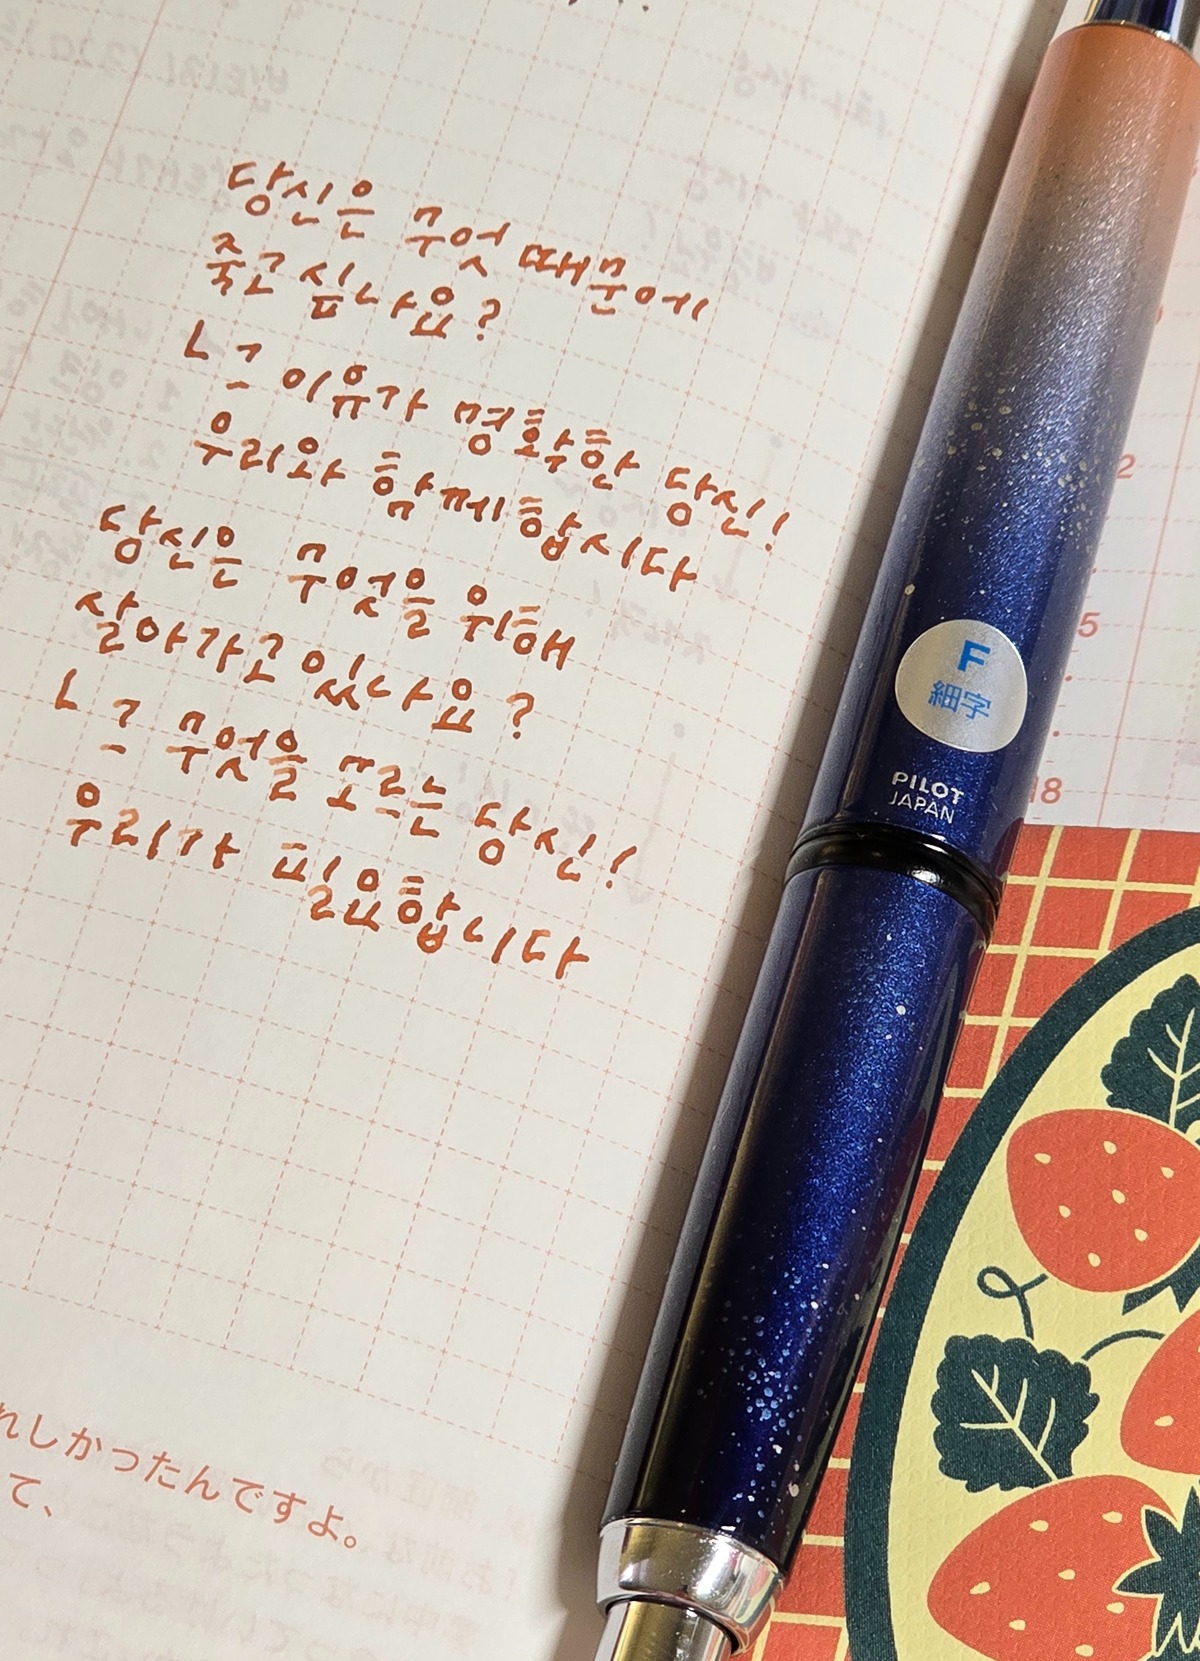 당신은 무엇 때문에
죽고 싶나요?
ㄴ 그 이유가 명확한 당신!
우리와 함께합시다
당신은 무엇을 위해
살아가고 있나요?
ㄴ 그 무엇을 모르는 당신!
우리가 필요합니다
F
細字
PILOT
JAPAN
2
5
18
れしかったんですよ。
て、